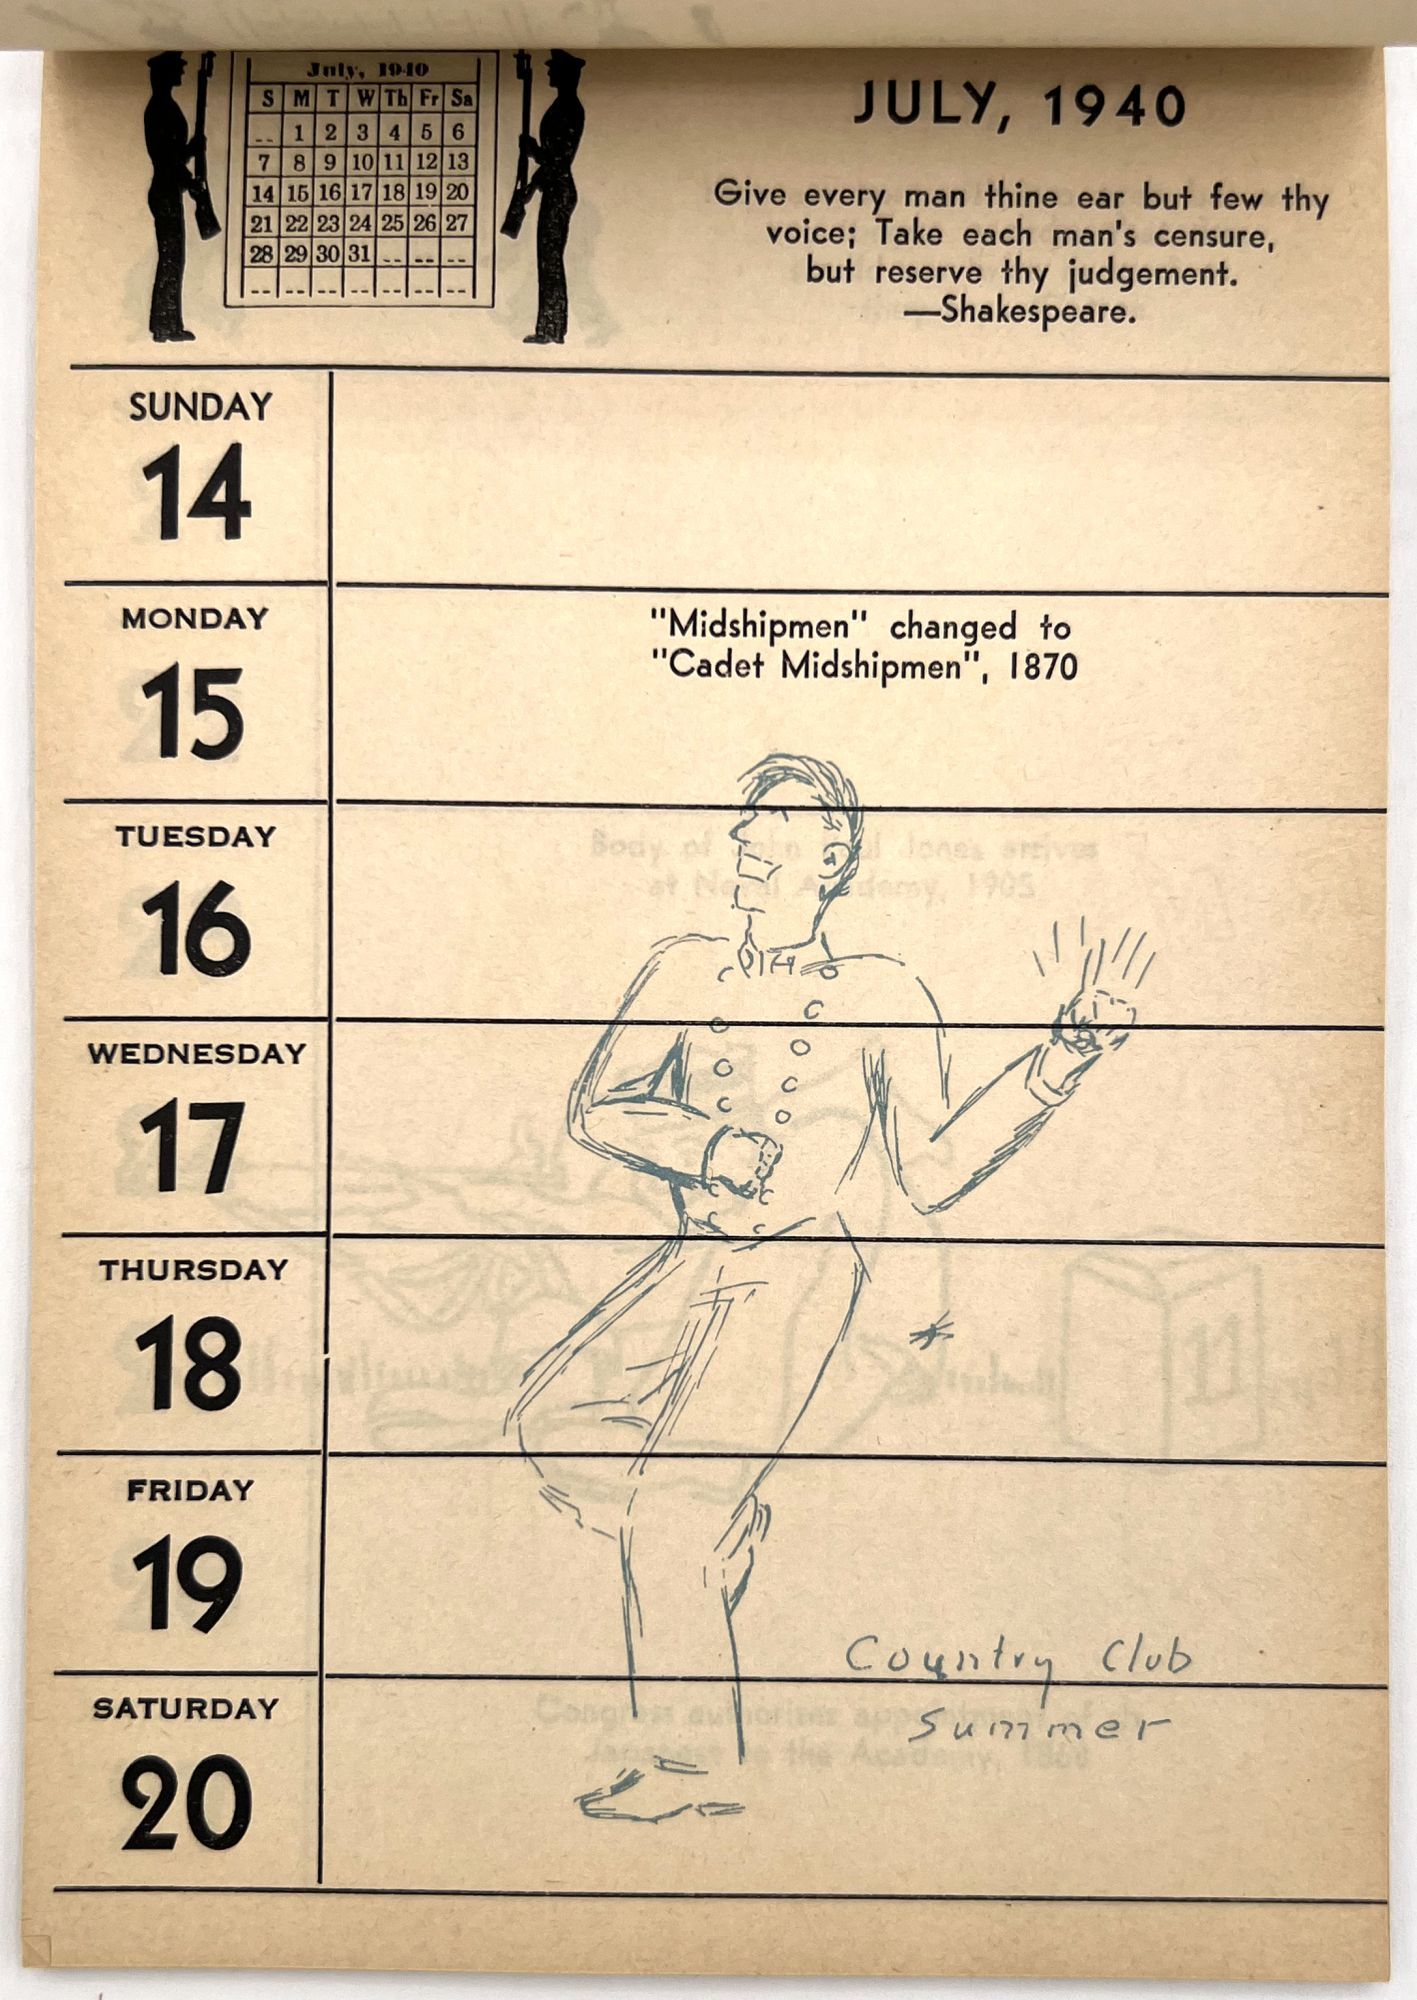 July, 1940
S M T W Th Fr Sa
-- 1 2 3 4 5 6
7 8 9 10 11 12 13
14 15 16 17 18 19 20
21 22 23 24 25 26 27
28 29 30 31 -- -- --
-- -- -- -- -- -- --
JULY, 1940
Give every man thine ear but few thy
voice; Take each man's censure,
but reserve thy judgement.
—Shakespeare.
SUNDAY
14
MONDAY
15
"Midshipmen" changed to
"Cadet Midshipmen", 1870
TUESDAY
16
Body of John Paul Jones arrives
at Naval Academy, 1905
WEDNESDAY
17
THURSDAY
18
FRIDAY
19
Country Club
Summer
SATURDAY
20
Congress authorizes appointment of
Japanese to the Academy, 1868